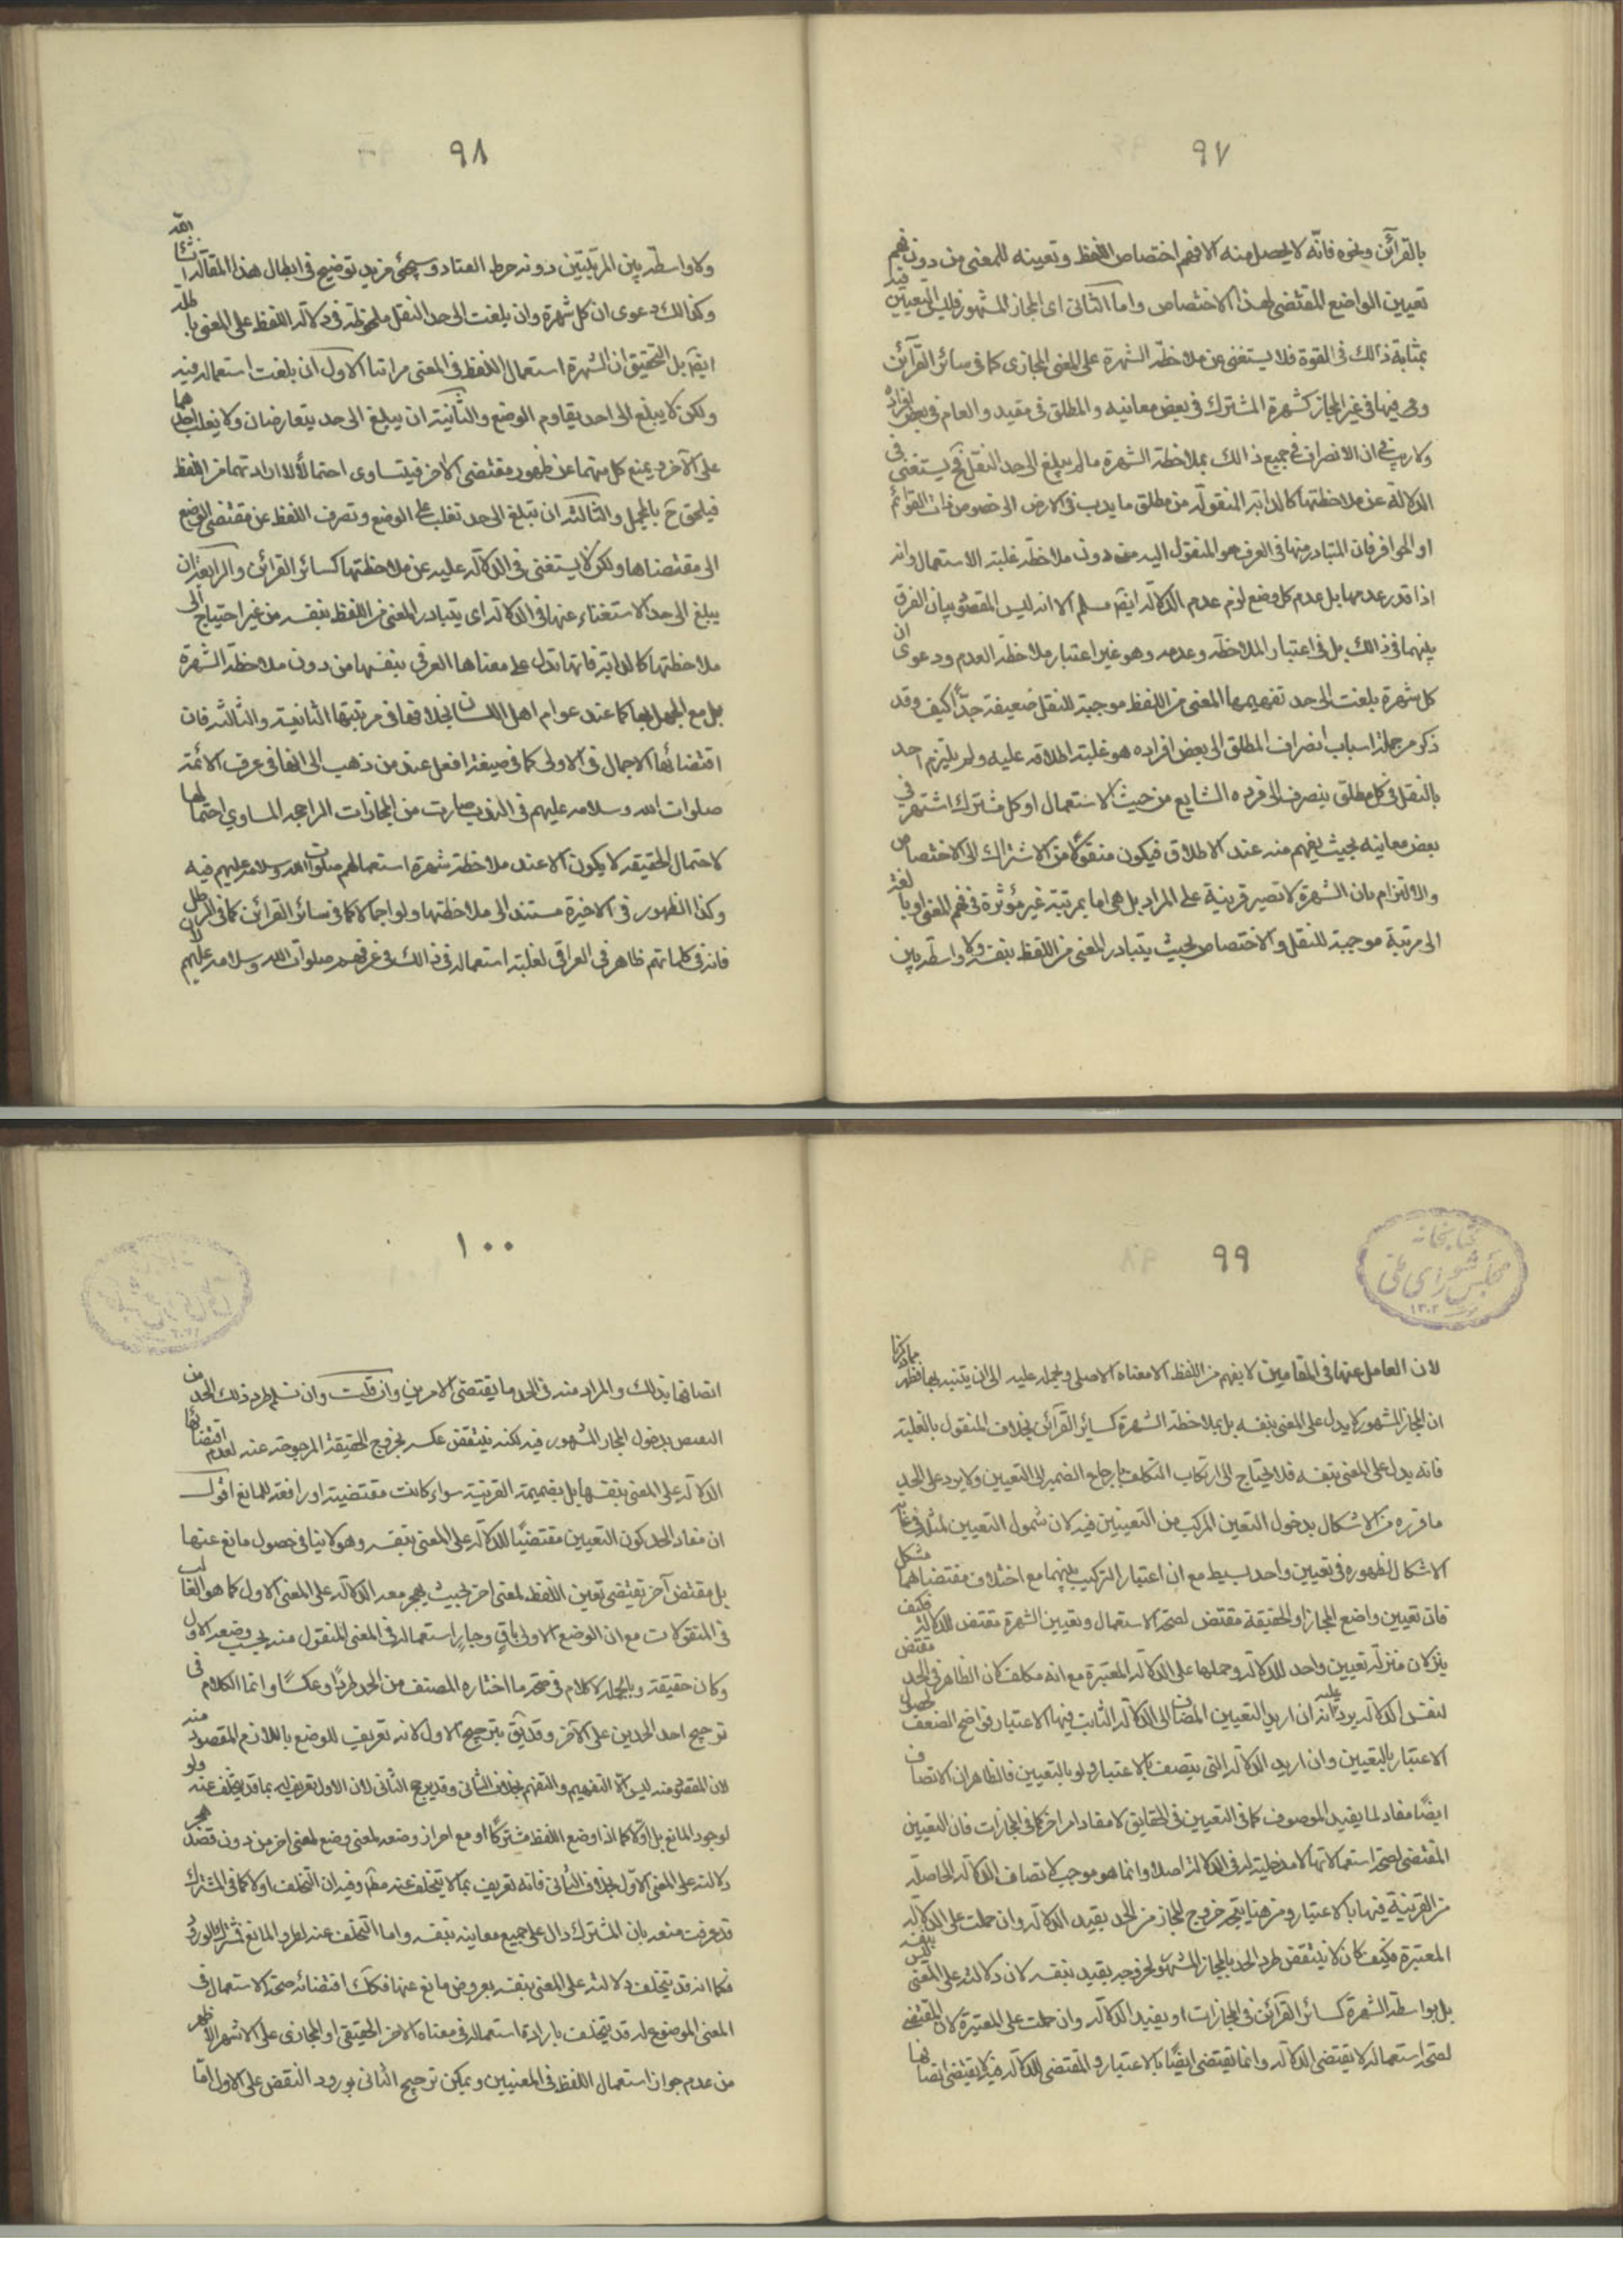 ٩٧
بالقرآئن ونحوه فانّه لا يحصل منه الا فهم اختصاص اللفظ وتعيينه للمعنى من دون فهم
تعيين الواضع المقتضى لهذا الاختصاص واما الثانى اى المجاز المشهور فليس التعيين فيه
بمثابة ذالك فى القوة فلا يستغنى عن ملاحظة الشهرة على المعنى المجازى كما فى سائر القرآئن
وفيها فى غير المجاز كشهرة المشترك فى بعض معانيه والمطلق فى مقيد والعام فى بعض افراده
ولا ريب فى ان الانصراف فى جميع ذالك بملاحظة الشهرة ما لم يبلغ الى حد النقل فح يستغنى فى
الدلالة عن ملاحظتها كالدابة المنقولة من مطلق ما يدب فى الارض الى خصوص ذات القوائم
او الحوافر فان المتبادر منها فى العرف هو المنقول اليه من دون ملاحظة غلبة الاستعمال وانه
اذا قدر عدمها بل عدم كل وضع لزم عدم الدلالة ايضا مسلم الا انه ليس المقصود بيان الفرق
بينهما فى ذالك بل فى اعتبار الملاحظة وعدمه وهو غير اعتبار ملاحظة العدم ودعوى ان
كل شهرة بلغت الى حد تفهيمها المعنى من اللفظ موجبة للنقل ضعيفة جدّاً كيف وقد
ذكر من جملة اسباب انصراف المطلق الى بعض افراده هو غلبة اطلاقه عليه ولم يلتزم احد
بالنقل فى كل مطلق ينصرف الى فرده الشايع من حيث الاستعمال او كل مشترك اشتهر فى
بعض معانيه بحيث يفهم منه عند الاطلاق فيكون منقولاً من الاشتراك الى الاختصاص
والالتزام بان الشهرة لا تصير قرينة على المراد بل هى اما بمرتبة غير مؤثرة فى فهم المعنى او بالغة
الى مرتبة موجبة للنقل والاختصاص بحيث يتبادر المعنى من اللفظ بنفسه ولا واسطة بين
٩٨
ولا واسطة بين المرتبتين دونه خرط القتاد وسيجئ مزيد توضيح فى ابطال هذا المقالة انشاء الله
وكذالك دعوى ان كل شهرة وان بلغت الى حد النقل ملحوظة فى دلالة اللفظ على المعنى باطلة
ايضا بل التحقيق ان لشهرة استعمال اللفظ فى المعنى مراتبا الاول ان بلغت استعماله فيه
ولكن لا يبلغ الى احد يقاوم الوضع والثانية ان يبلغ الى حد يتعارضان ولا يغلب احدهما
على الآخر ويمنع كل منهما عن ظهور مقتضى الآخر فيتساوى احتمالا لارادتهما من اللفظ
فيلحق ح بالمجمل والثالثة ان تبلغ الى حد تغلب على الوضع وتصرف اللفظ عن مقتضى الوضع
الى مقتضاها ولكن لا يستغنى فى الدلالة عليه عن ملاحظتها كسائر القرائن والرابعة ان
يبلغ الى حد الاستغناء عنها فى الدلالة اى يتبادر المعنى من اللفظ بنفسه من غير احتياج الى
ملاحظتها كالدابة فانها تدل على معناها العرفى بنفسها من دون ملاحظة الشهرة
بل مع الجهل بها كما عند عوام اهل اللسان بخلافها فى مرتبتها الثانية والثالثة فان
اقتضائها الاجمال فى الاولى كما فى صيغة افعل عند من ذهب الى انها فى عرف الائمة
صلوات الله وسلامه عليهم فى الندب صارت من المجازات الراجحة المساوي احتمالها
لاحتمال الحقيقة لا يكون الا عند ملاحظة شهرة استعمالهم صلوات الله وسلامه عليهم فيه
وكذا الظهور فى الاخيرة مستند الى ملاحظتها ولو اجمالا كما فى سائر القرائن كما فى الرطل
فانه فى كلماتهم ظاهر فى العراقى لغلبة استعماله فى ذالك فى عرفهم صلوات الله وسلامه عليهم
٩٩
لان العامل عنها فى المقامين لا يفهم من اللفظ الا معناه الاصلى ويحمله عليه الى ان يتنبه بها فظهر مما ذكرنا
ان المجاز المشهور لا يدل على المعنى بنفسه بل بملاحظة الشهرة كسائر القرآئن بخلاف المنقول بالغلبة
فانه يدل على المعنى بنفسه فلا يحتاج الى ارتكاب التكلف بارجاع الضمير الى التعيين ولا يرد على الحد
ما قرره من الاشكال بدخول التعين المركب من التعيينين فيه لان شمول التعيين لمثله فى غاية
الاشكال لظهوره فى تعيين واحد بسيط مع ان اعتبار التركيب بينهما مع اختلاف مقتضاهما مشكل
فان تعيين واضع المجاز او الحقيقة مقتض لصحة الاستعمال وتعيين الشهرة مقتض للدلالة فكيف
ينزلان منزلة تعيين واحد للدلالة وحملها على الدلالة المعتبرة مع انه مكلف كان الظاهر فى الحد مقتض
لنفس الدلالة يرد عليه انه ان اريد التعيين المضاف الى الدلالة الثابت فيها الاعتبار فواضح الضعف لحصول
الاعتبار بالتعيين وان اريد الدلالة التى يتصف بالاعتبار ولو بالتعيين فالظاهر ان الاتصاف
ايضًا مفاد لما يفيد الموصوف كما فى التعيين فى الحقايق لا مفاد امر اخر كما فى المجازات فان التعيين
المقتضى لصحة استعمالاتها لا مدخلية له فى الدلالة اصلا وانما هو موجب لاتصاف الدلالة الحاصلة
من القرينة فيها بالاعتبار ومن هنا يتجه خروج المجاز من الحد بقيد الدلالة وان حملت على الدلالة
المعتبرة فكيف كان لا ينتقض طرد الحد بالمجاز المشهور لخروجه بقيد بنفسه لان دلالته على المعنى ليس بنفسه
بل بواسطة الشهرة كسائر القرآئن فى المجازات او بقيد الدلالة وان حملت على المعتبرة لان المقتضى
لصحة استعماله لا يقتضى الدلالة وانما يقتضى ايضًا بالاعتبار والمقتضى للدلالة فيه لا يقتضى اتصافها
١٠٠
اتصافها بذالك والمراد منه فى الحد ما يقتضى الامرين وان قلت وان تسلم طرد ذلك الحد من
النقض بدخول المجاز المشهور فيه لكنه ينتقض عكسه بخروج الحقيقة المرجوحة عنه لعدم اقتضائها
الدلالة على المعنى بنفسها بل بضميمة القرينة سواء كانت مقتضية او رافعة للمانع اقول
ان مفاد الحد كون التعيين مقتضيًا للدلالة على المعنى بنفسه وهو لا ينافى حصول مانع عنها
بل مقتض آخر يقتضى تعين اللفظ لمعنى اخر بحيث يهجر معه الدلالة على المعنى الاول كما هو الغالب
فى المنقولات مع ان الوضع الاولى باقٍ وجاز استعماله فى المعنى المنقول منه بحسب وضعه الاول
وكان حقيقة وبالجملة لا كلام فى صحة ما اختاره المصنف من الحد طردًا وعكسًا وانما الكلام فى
ترجيح احد الحدين على الآخر وقد يق بترجيح الاول لانه تعريف للوضع باللازم المقصود منه
لان المقصود منه ليس الا التفهيم والتفهم بخلاف الثانى وقد يرجح الثانى لان الاول تعريف له بما قد يتخلف عنه ولو
لوجود المانع بل اولا كما اذا وضع اللفظ مشتركًا او مع احراز وضعه لمعنى وضع لمعنى اخر من دون قصد هجر
دلالته على المعنى الاول بخلاف الثانى فانه تعريف بما لا يتخلف عنه مطلقا وفيه ان التخلف اولا كما فى المشترك
قد عرفت منعه بان المشترك دال على جميع معانيه بنفسه واما التخلف عنه لطرو المانع فمشترك الورود
فكما انه قد يتخلف دلالته على المعنى بنفسه بعروض مانع عنها فكك اقتضائه صحة الاستعمال فى
المعنى الموضوع له قد يتخلف بارادة استعماله فى معناه الاخر الحقيقى او المجازى على الاشهر الاظهر
من عدم جواز استعمال اللفظ فى المعنيين ويمكن ترجيح الثانى بورود النقض على الاول امّا
كتابخانه
مجلس شورای ملی
١٣٠٢